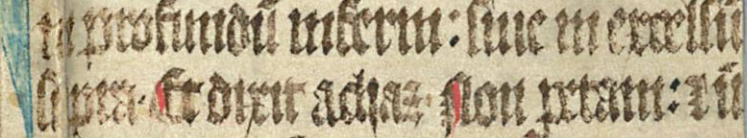 in profundū inferni: siue in excelsū
supra. Et dixit achaz. Non petam: ⁊ nō